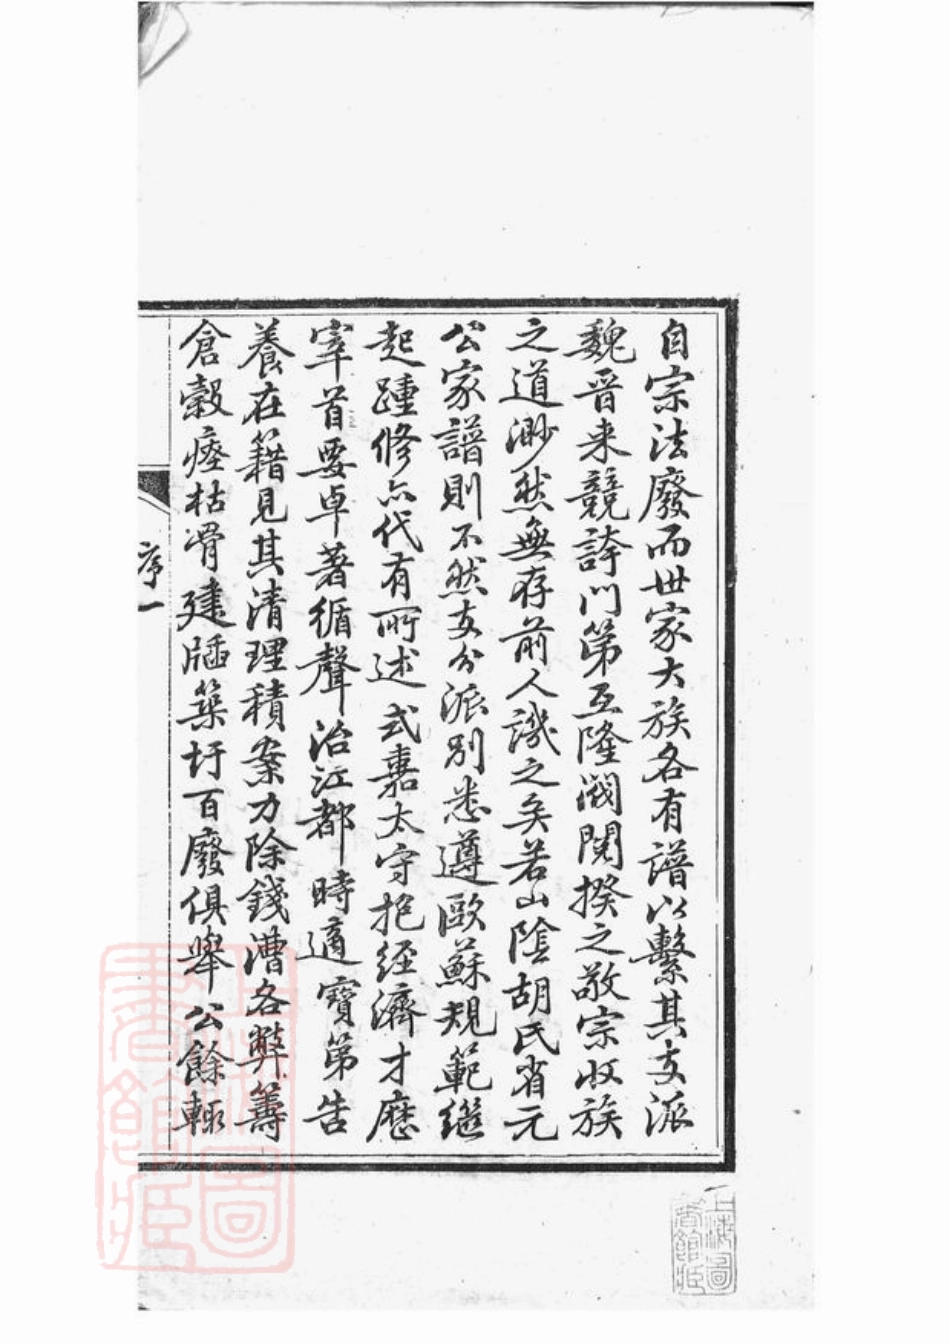 自宗法廢而世家大族各有譜以繫其支派
魏晉来競誇門第互隆閥閱揆之敬宗收族
之道渺然無存前人譏之矣若山陰胡氏省元
公家譜則不然支分派別悉遵歐蘇規範繼
起踵修亦代有所述式嘉太守抱經濟才歷
宰首要卓著循聲治江都時適寶第告
養在籍見其清理積案力除錢漕各弊籌
倉穀瘞枯骨建牐築圩百廢俱舉公餘輒
序一
上海圖書館藏
上海圖書館藏